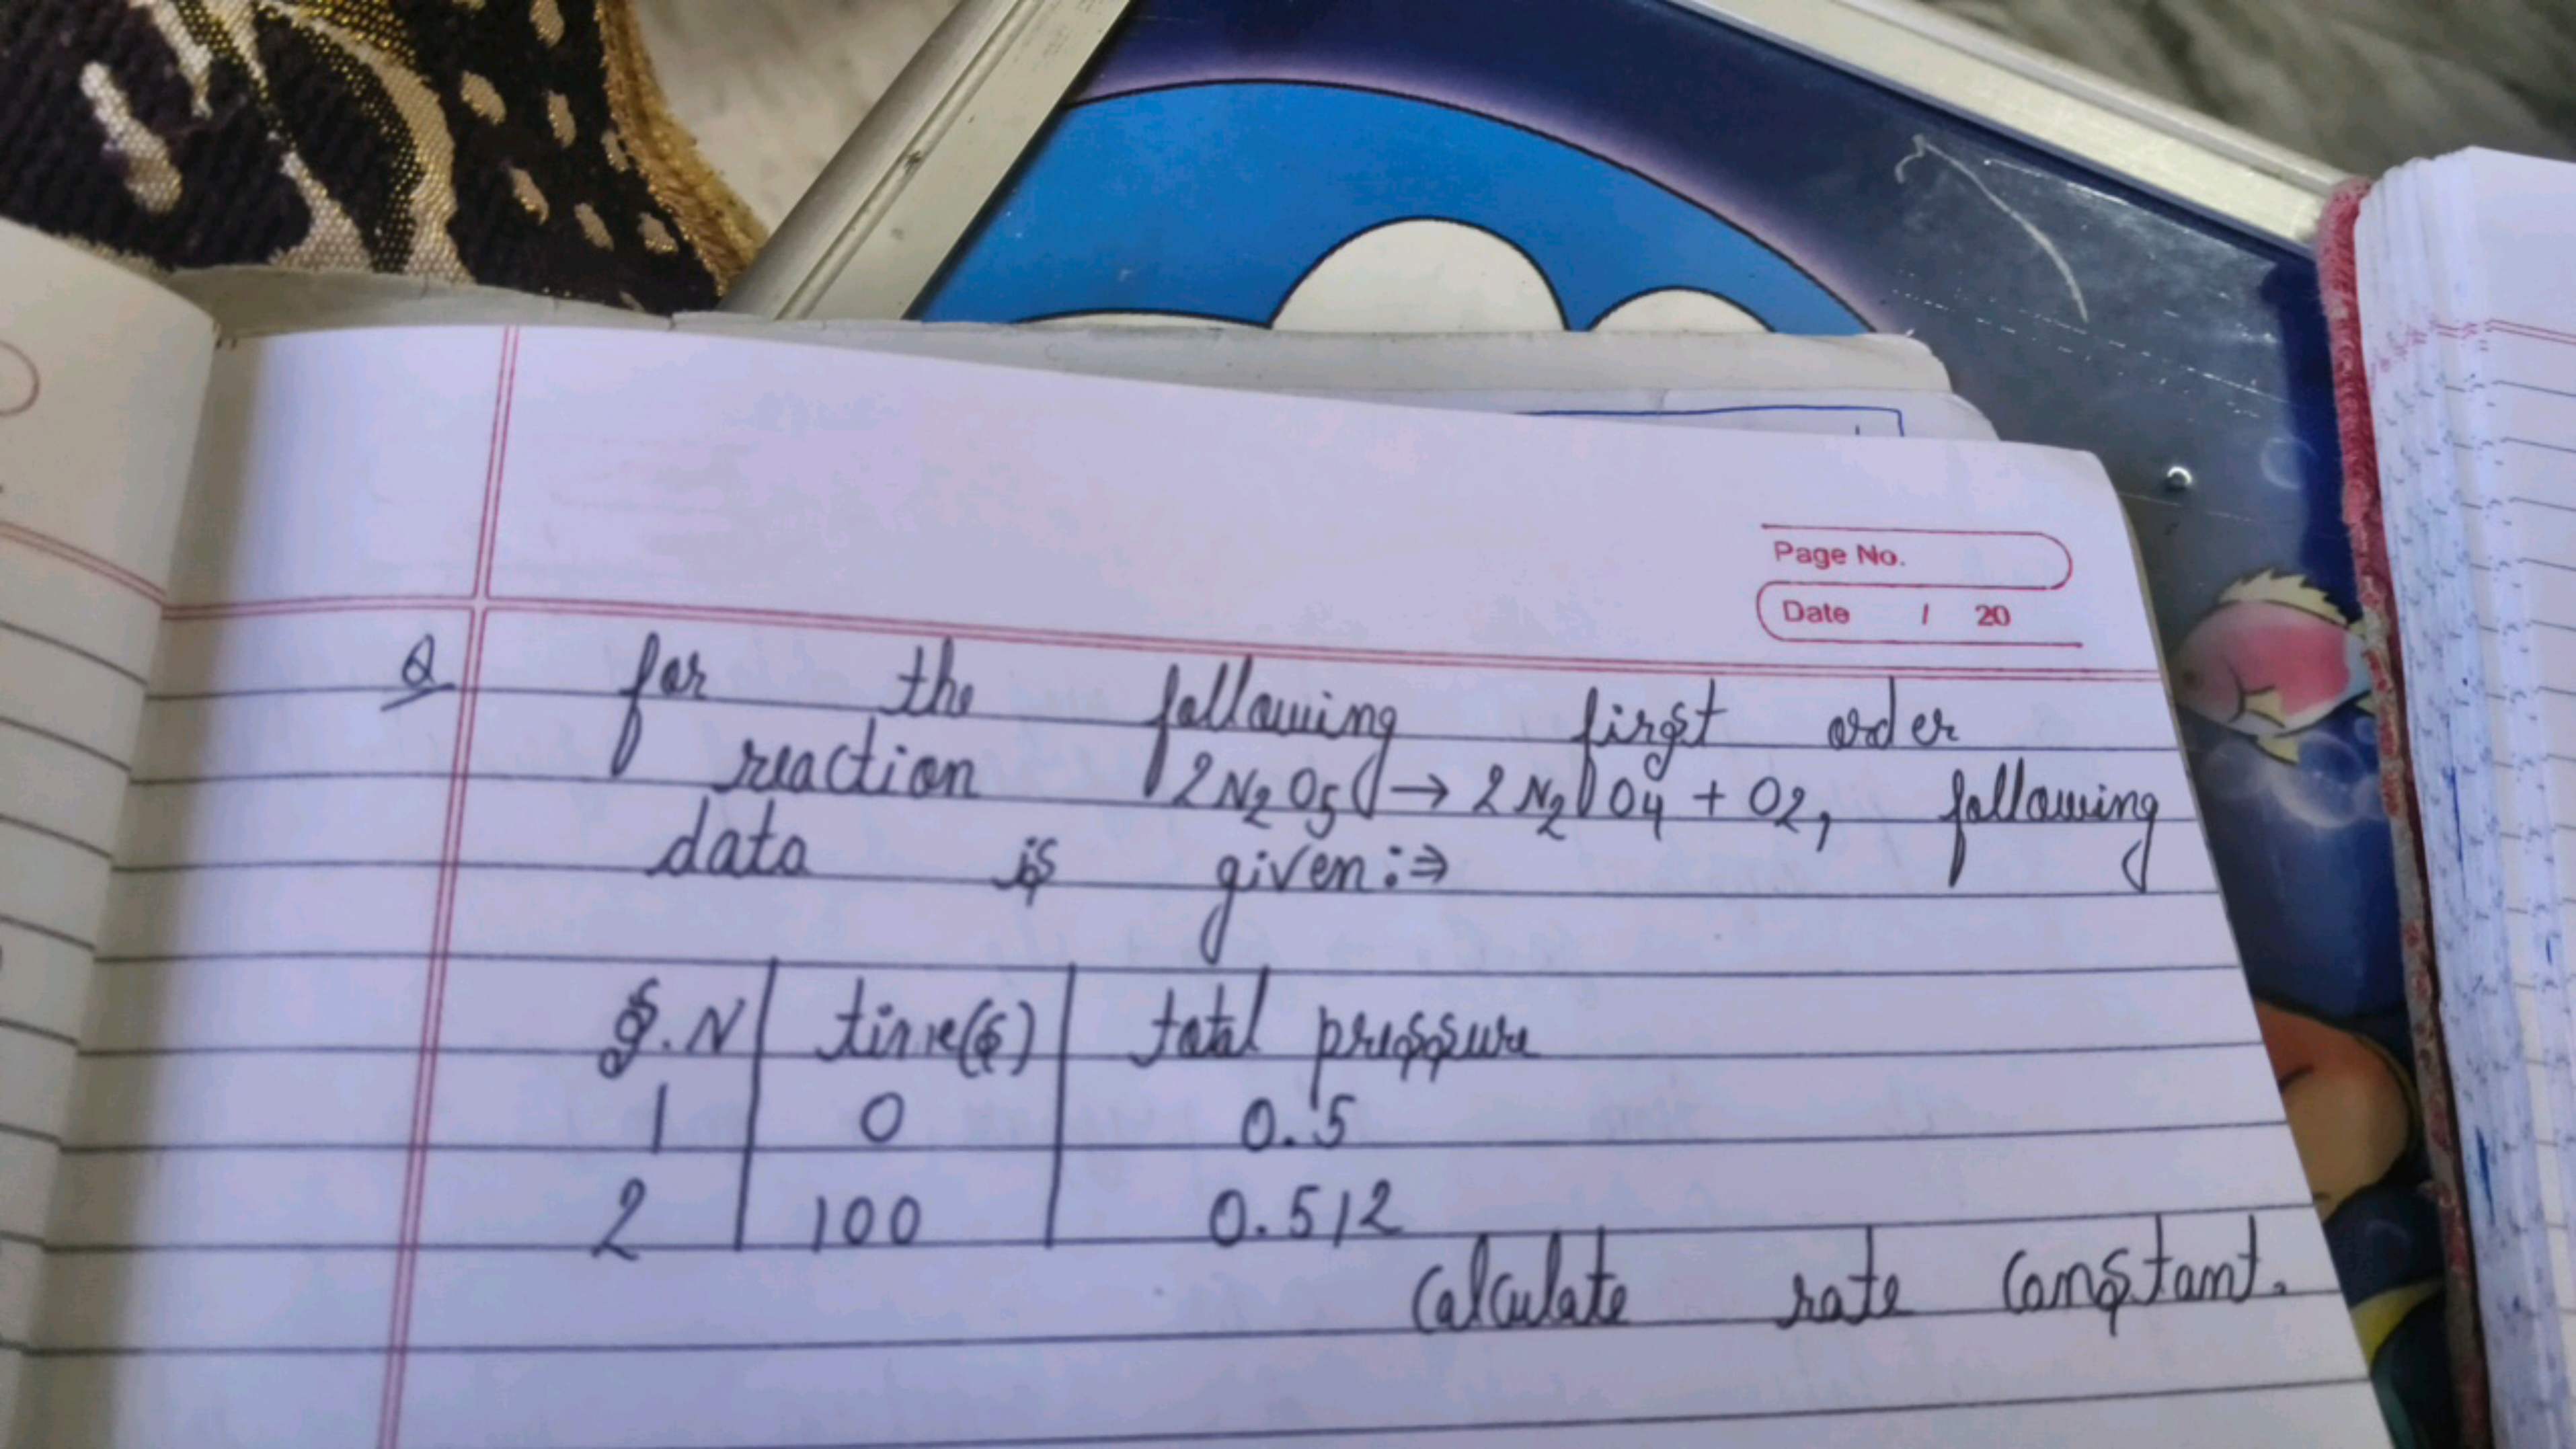 Page No.
Date / 20
Q for the following first order
reaction 2N₂O₅ → 2N₂O₄ + O₂, following
data is given:⇒
S.N time(s) total pressure
1 0 0.5
2 100 0.512
Calculate rate constant.